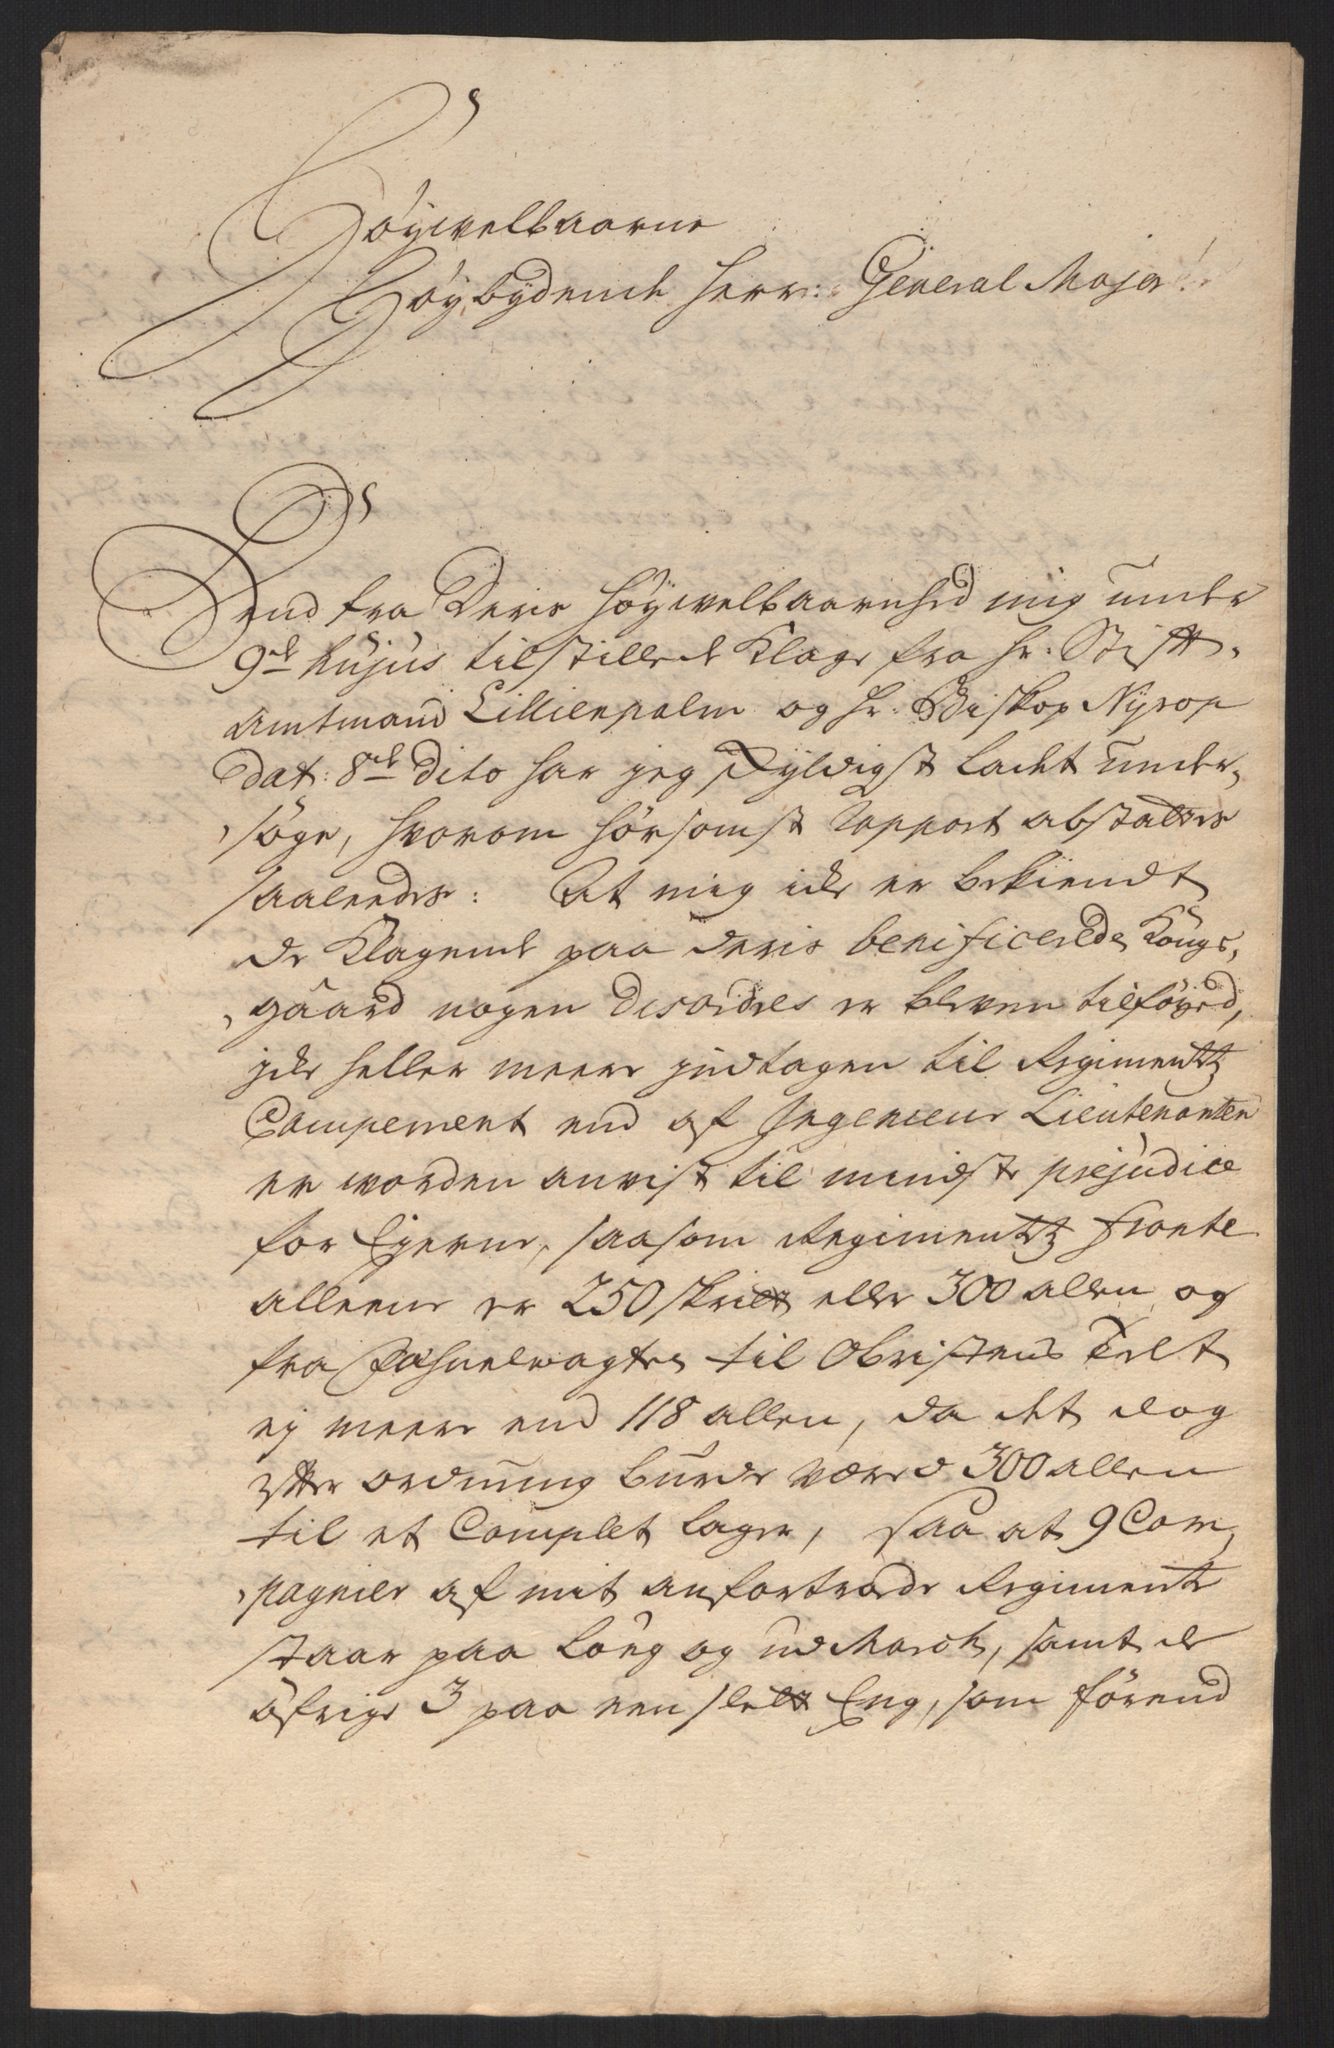 Høÿwelbaarne
Høÿbÿdende Herr: General Major
Dend fra Deris Høÿwelbaarenhed mig under
9de hujus tilstillede Klage fra Hr. Stift-
amtmand Lillienpalm og Hr. Biskop Nÿrop
dat: 8de dito har jeg skÿldigst ladet under-
søge, hvorom hørsomst Rapport abstattes
saaledes: At mig icke er bekiendt
de Klagende paa deris beneficerede Kongs-
gaard nogen Desordres er bleven tilføÿed,
icke heller meere indtagen til Regimentz
Campement end af Ingenieur Lieutenanten
er worden anvist til mindste prejudice
for Eÿerne, saasom Regimentz Fronte
alleene er 250 skridt eller 300 allen og
fra Fahnewagten til Obristens Telt
eÿ meere end 118 allen, da det dog
efter ordning burde være 300 allen
til et Complet lager, saa at 9 Com-
pagnier af mit anfortroede Regimente
staar paa Lÿng og ud March, samt de
øfrige 3 paa een slett Eng, som førend